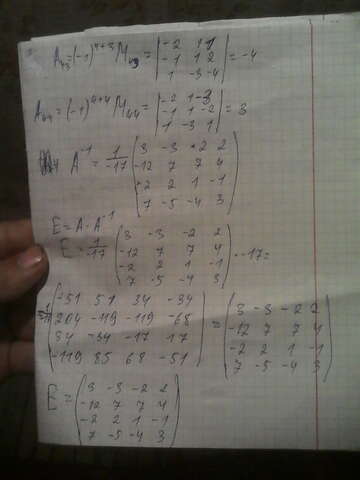 A₄₃=(-1)⁴⁺³ M₄₃ = |-2 1 1| = -4
|-1 1 2|
|1 -3 -4|
A₄₄=(-1)⁴⁺⁴ M₄₄ = |-2 1 -3| = 3
|-1 1 -2|
|1 -3 1|
A⁻¹ = 1/-17 (3 -3 -2 2
-12 7 7 4
-2 2 1 -1
7 -5 -4 3)
E = A·A⁻¹
E = 1/-17 (3 -3 -2 2
-12 7 7 4
-2 2 1 -1
7 -5 -4 3) · -17 =
(-51 51 34 -34
204 -119 -119 -68
34 -34 -17 17
-119 85 68 -51) = (3 -3 -2 2
-12 7 7 4
-2 2 1 -1
7 -5 -4 3)
E = (3 -3 -2 2
-12 7 7 4
-2 2 1 -1
7 -5 -4 3)